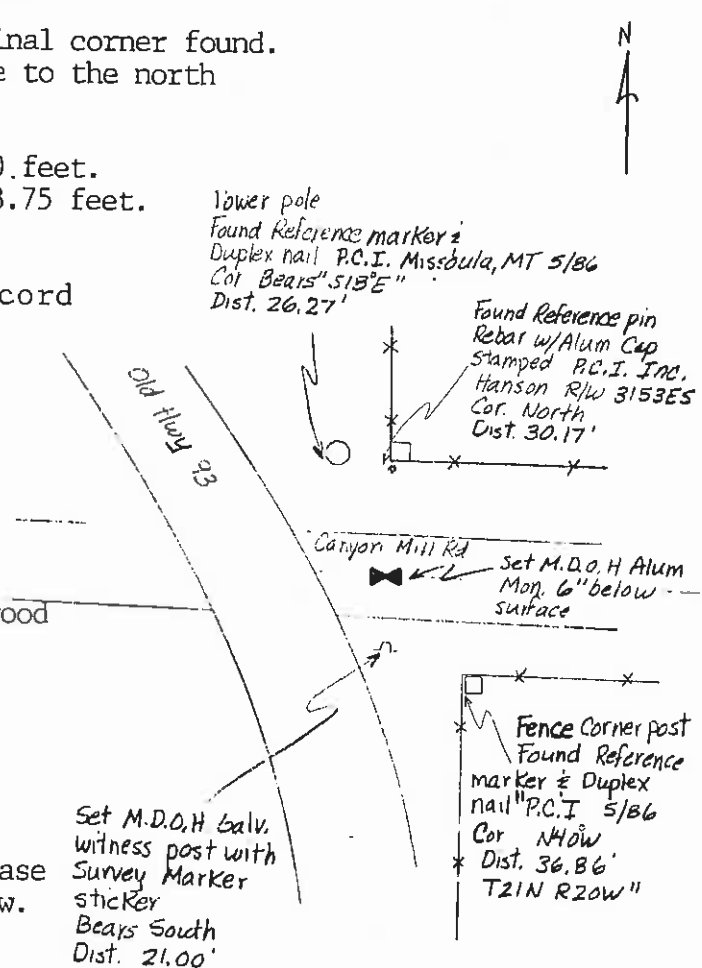 inal corner found.
e to the north
N
0.feet.
3.75 feet.
cord
Power pole
Found Reference marker &
Duplex nail P.C.I. Missoula, MT 5/86
Cor Bears "S13°E"
Dist. 26.27'
Found Reference pin
Rebar w/Alum Cap
Stamped P.C.I. Inc.
Hanson R/W 3153ES
Cor. North
Dist. 30.17'
Old Hwy 93
Canyon Mill Rd
Set M.D.O.H Alum
Mon. 6" below
surface
ood
Fence Corner post
Found Reference
marker & Duplex
nail "P.C.I 5/86
Cor N40°W
Dist. 36.86'
T21N R20W"
Set M.D.O.H Galv.
witness post with
Survey Marker
sticker
Bears South
Dist. 21.00'
ase
w.